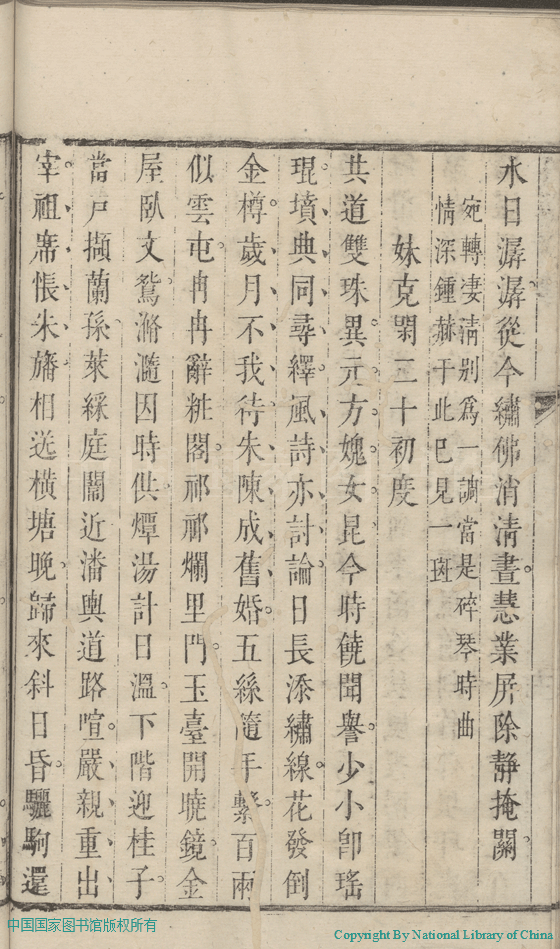 水日潺潺從今繡佛消清晝慧業屏除靜掩關
宛轉凄清別爲一調當是碎琴時曲
情深鍾赫于此已見一斑
妹克閑三十初度
共道雙珠異元方媿女昆今時饒聞譽少小卽瑤
琨墳典同尋繹風詩亦討論日長添繡線花發倒
金樽歲月不我待朱陳成舊婚五絲隨年繫百兩
似雲屯冉冉辭粧閣祁祁爛里門玉臺開曉鏡金
屋臥文鴛滫瀡因時供燂湯計日溫下階迎桂子
當戸擷蘭孫萊綵庭闈近潘輿道路喧嚴親重出
宰祖席悵朱旛相送橫塘晚歸來斜日昏驪駒還
中国国家图书馆版权所有
Copyright By National Library of China